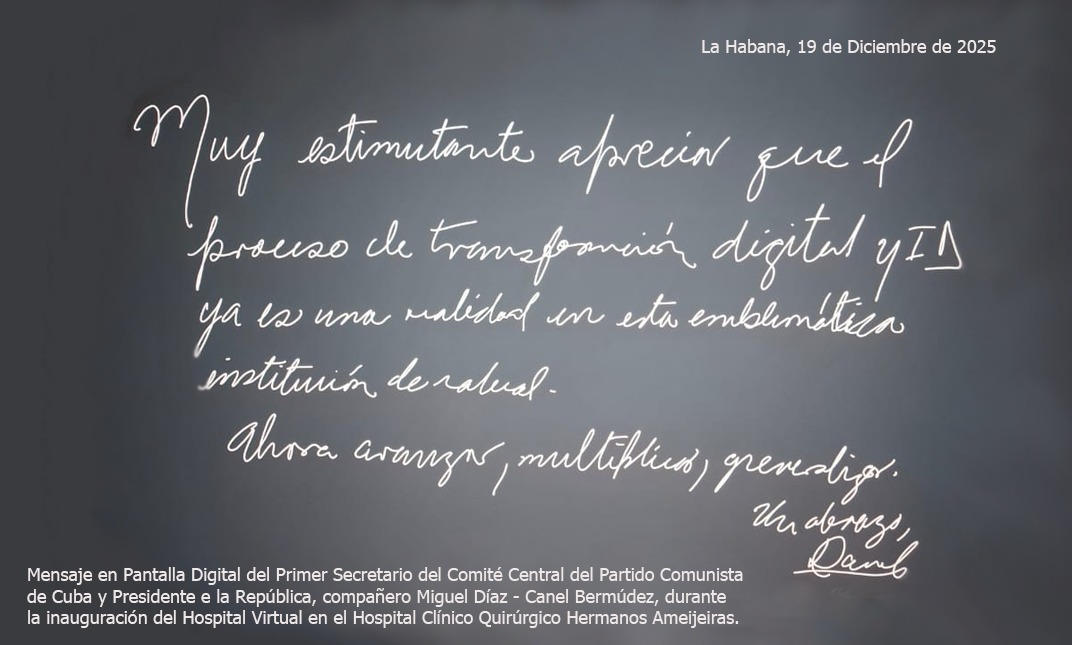 La Habana, 19 de Diciembre de 2025
Muy estimulante apreciar que el
proceso de transformación digital y IA
ya es una realidad en esta emblemática
institución de salud.
Ahora avanzar, multiplicar, generalizar.
Un abrazo,
Mensaje en Pantalla Digital del Primer Secretario del Comité Central del Partido Comunista
de Cuba y Presidente e la República, compañero Miguel Díaz - Canel Bermúdez, durante
la inauguración del Hospital Virtual en el Hospital Clínico Quirúrgico Hermanos Ameijeiras.